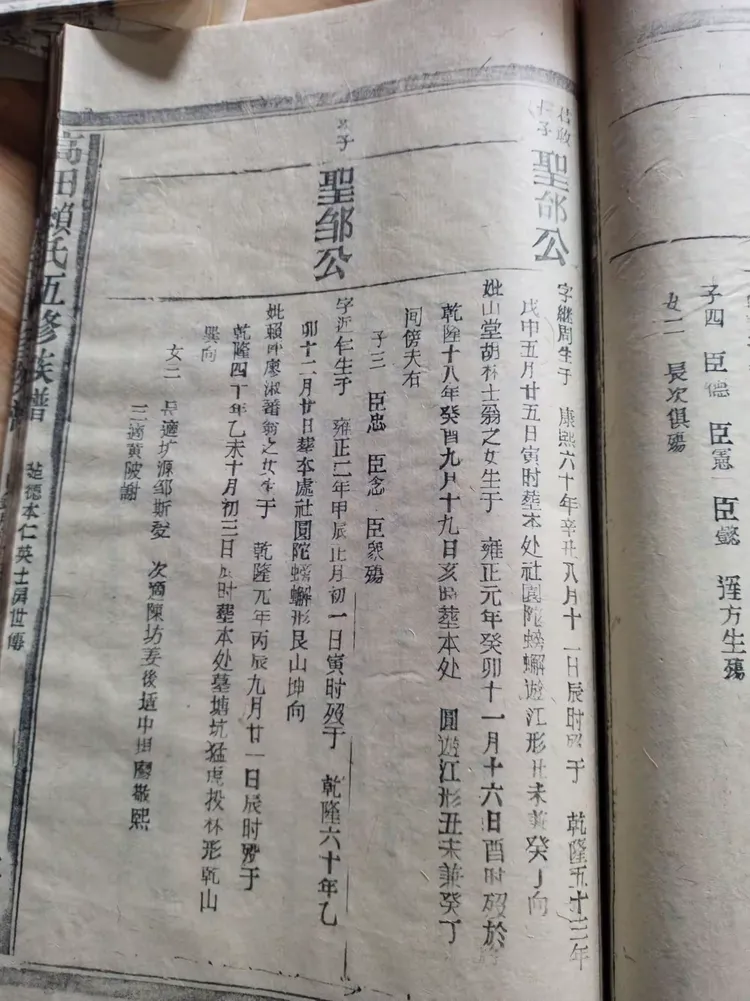 子四 臣德 臣憲 臣懿 運方生殤
女二 長次俱殤
君敢
長子
聖邰公
字繼周生于 康熙六十年辛丑八月十一日辰时殁于 乾隆五十三年
戊申五月廿五日寅时塟本处社園陀螃蠏遊江形丑未兼癸丁向
妣山堂胡林士翁之女生于 雍正元年癸卯十一月十六日酉时殁於
乾隆十八年癸酉九月十九日亥時塟本处 圓遊江形丑未兼癸丁
同傍夫右
子三 臣忠 臣念 臣毅殤
次子
聖邹公
字近仁生于 雍正二年甲辰正月初一日寅时殁于 乾隆六十年乙
卯十二月廿日塟本處社園陀螃蠏形艮山坤向
妣賴坪廖淑蕃翁之女生于 乾隆元年丙辰九月廿一日辰时殁于
乾隆四十年乙未十月初三日辰时塟本处墓塘坑猛虎投林形乾山
巽向
女三 長適圹源邹斯發 次適陳坊姜後遁中坦廖敬熙
三適黄陂謝
高田賴氏五修族譜
楚德本仁英士房世傳